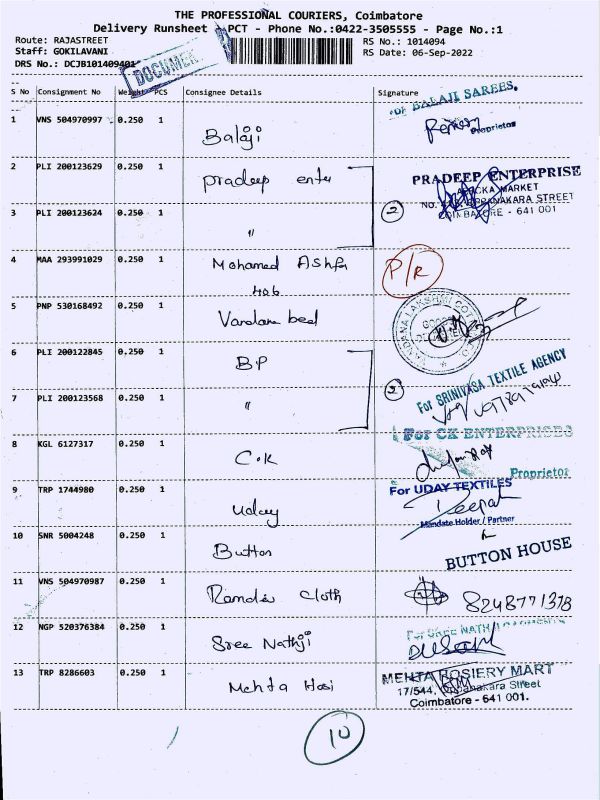 THE PROFESSIONAL COURIERS, Coimbatore
Delivery Runsheet PCT - Phone No.:0422-3505555 - Page No.:1
Route: RAJASTREET RS No.: 1014094
Staff: GOKILAVANI RS Date: 06-Sep-2022
DRS No.: DCJB101409401
DOCUMEN
S No Consignment No Weight PCS Consignee Details Signature
For BALAJI SAREES.
1 VNS 504970997 0.250 1 Balaji
Proprietor
2 PLI 200123629 0.250 1 Pradeep enter PRADEEP ENTERPRISE
MARKET
STREET
3 PLI 200123624 0.250 1 " 2 COIMBATORE - 641 001
4 MAA 293991029 0.250 1 Mohamed Ashfa P/R
5 PNP 530168492 0.250 1 Vandana bed
6 PLI 200122845 0.250 1 BP
For SRINIVASA TEXTILE AGENCY
7 PLI 200123568 0.250 1 "
For CK ENTERPRISES
8 KGL 6127317 0.250 1 C.K
Proprietor
9 TRP 1744980 0.250 1 uday For UDAY TEXTILES
Deepak
Mandate Holder / Partner
10 SNR 5004248 0.250 1 Button BUTTON HOUSE
11 VNS 504970987 0.250 1 Ramdev Cloth 8248771378
12 NGP 520376384 0.250 1 Sree Nathji For SREE NATHJI
13 TRP 8286603 0.250 1 Mehta Hosi MEHTA HOSIERY MART
17/544, Oppanakara Street
Coimbatore - 641 001.
10